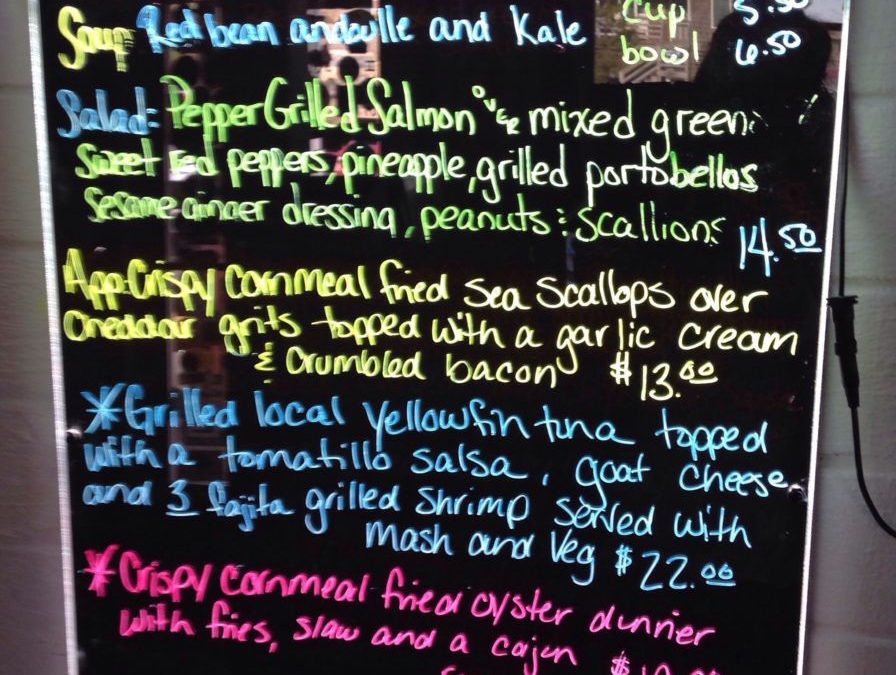 Soup Red bean andouille and Kale cup 5.50
bowl 6.50
Salad: Pepper Grilled Salmon over mixed green
Sweet red peppers, pineapple, grilled portobellos
Sesame ginger dressing, peanuts & Scallions
14.50
App-Crispy Cornmeal fried Sea Scallops over
Cheddar grits topped with a garlic cream
& Crumbled bacon $13.00
*Grilled local Yellowfin tuna topped
with a tomatillo salsa, goat cheese
and 3 fajita grilled shrimp served with
Mash and Veg $22.00
*Crispy Cornmeal fried oyster dinner
with fries, slaw and a cajun